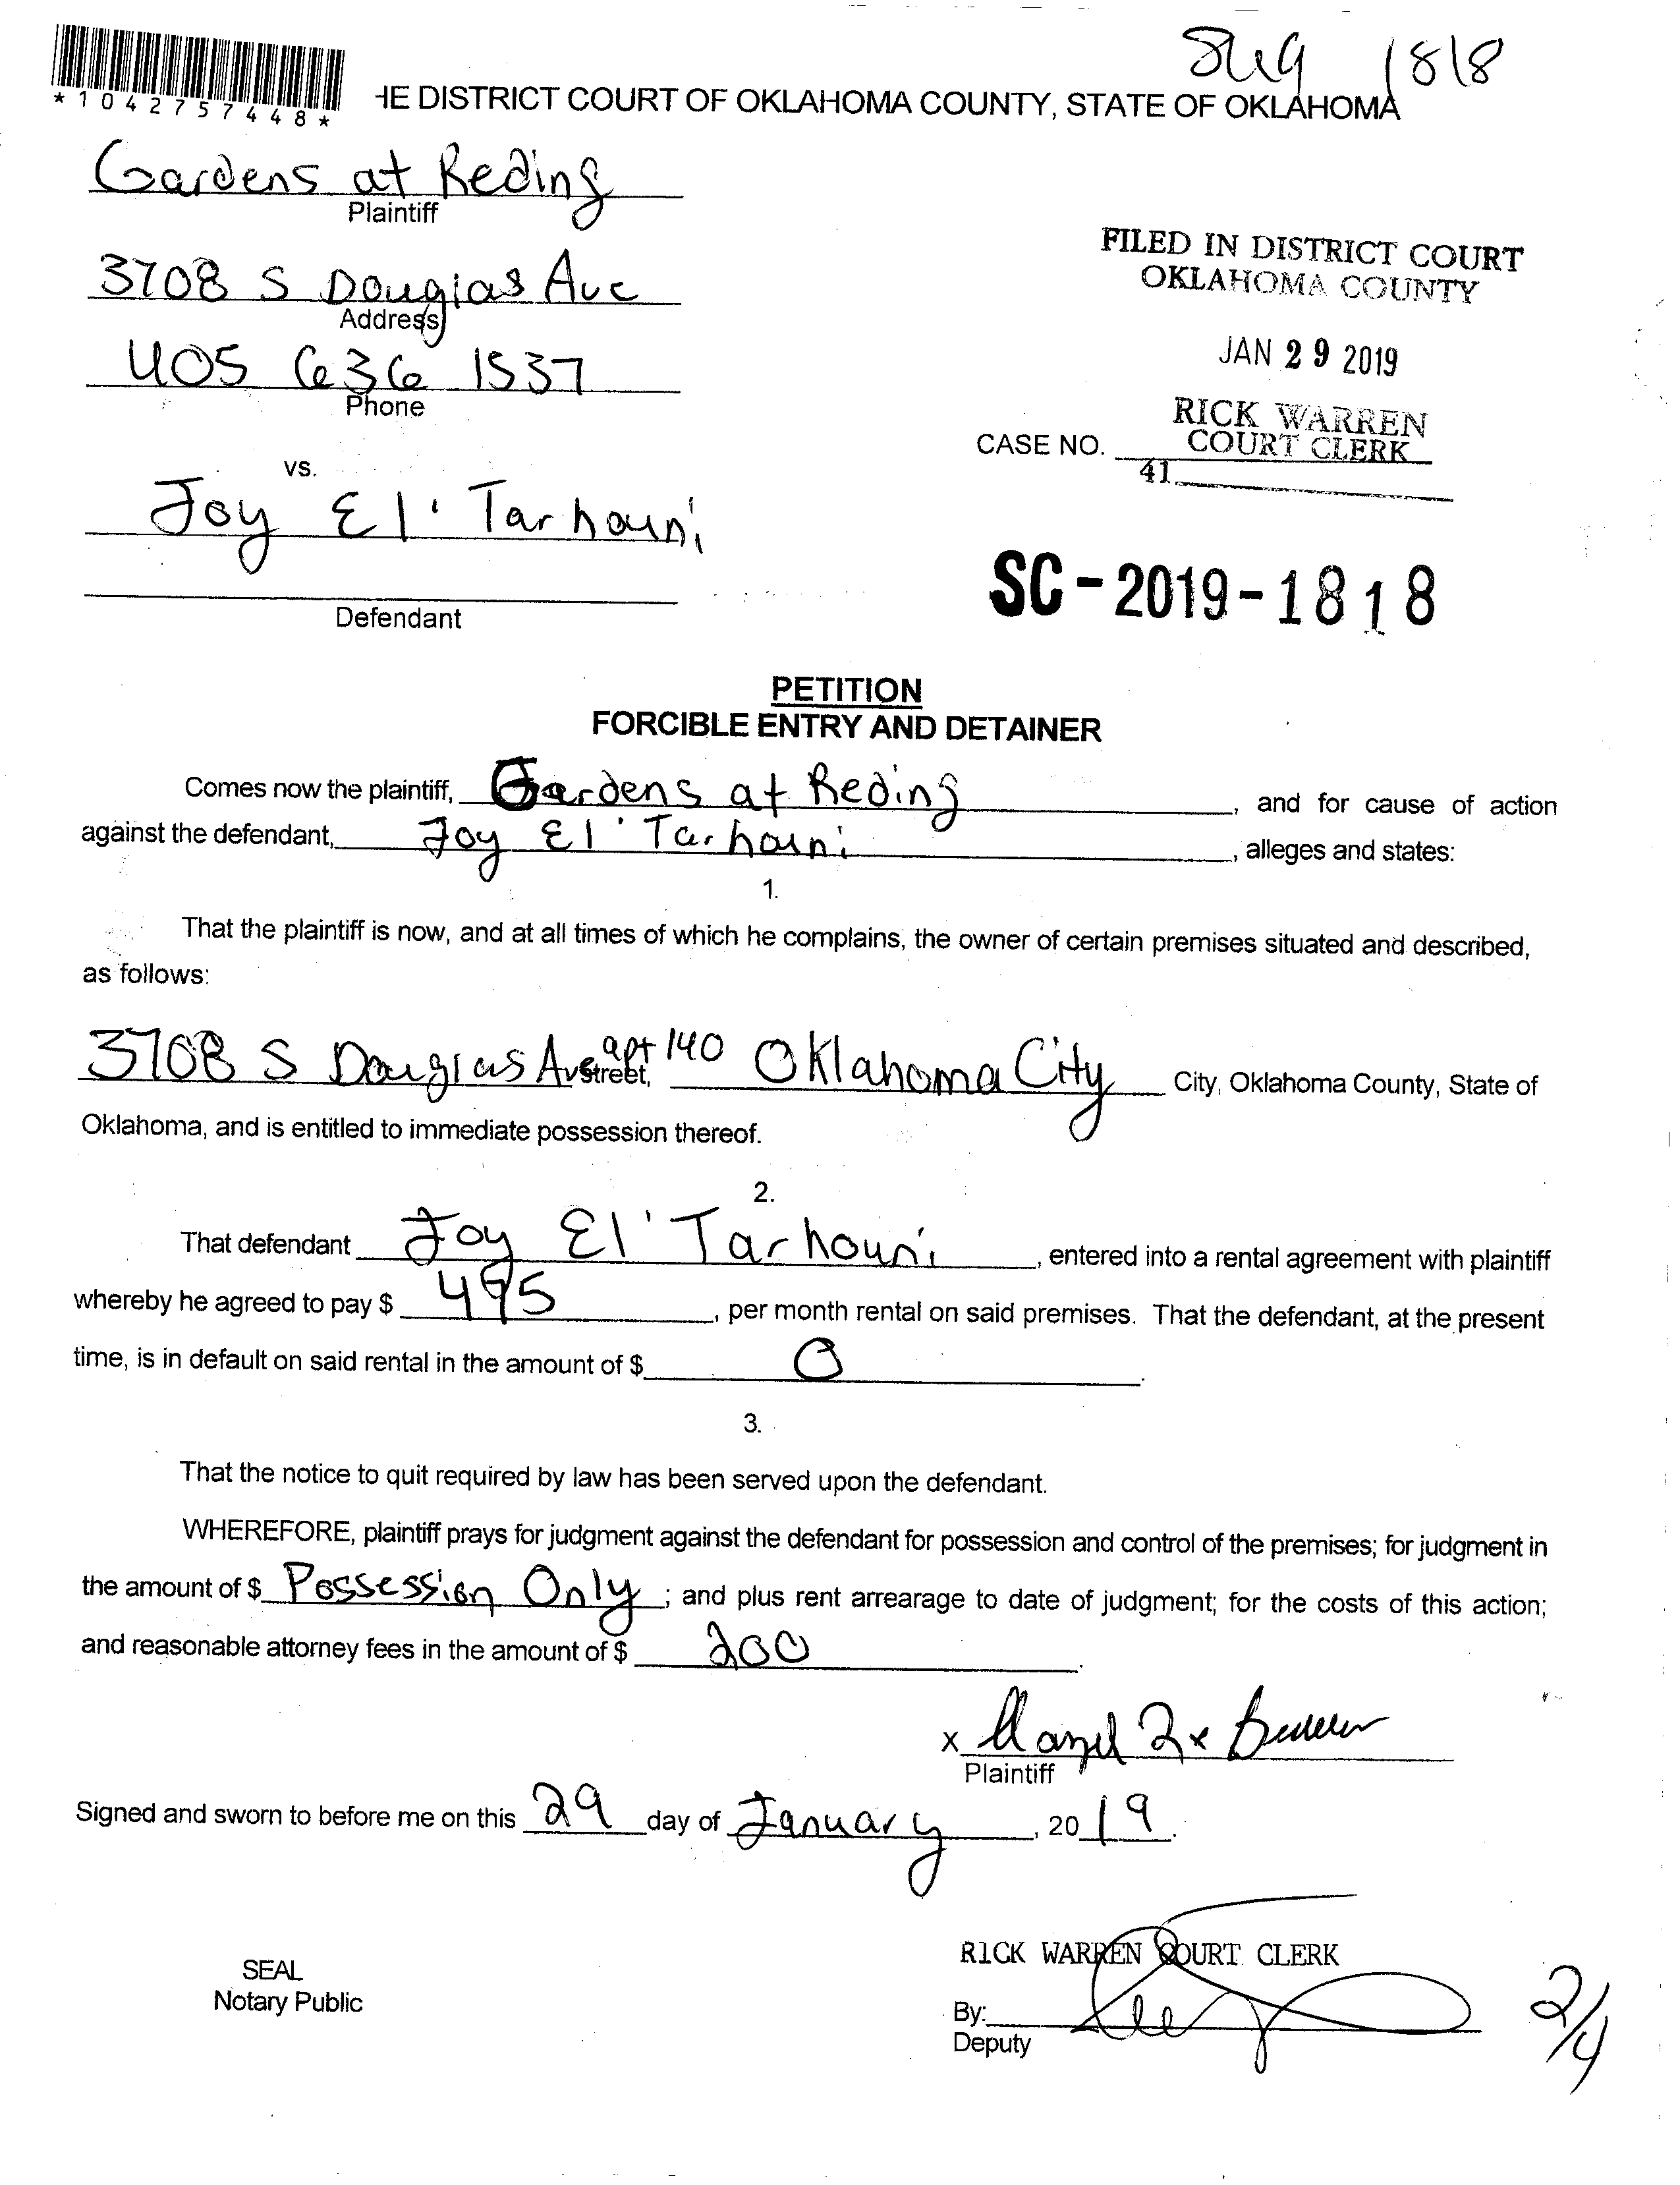 1818
*1042757448*
HE DISTRICT COURT OF OKLAHOMA COUNTY, STATE OF OKLAHOMA
Gardens at Reding
Plaintiff
3708 S Douglas Ave
Address
405 636 1537
Phone
FILED IN DISTRICT COURT
OKLAHOMA COUNTY
JAN 29 2019
RICK WARREN
COURT CLERK
CASE NO.
41
vs.
Joy El' Tarhouni
Defendant
SC-2019-1818
PETITION
FORCIBLE ENTRY AND DETAINER
Comes now the plaintiff, Gardens at Reding, and for cause of action
against the defendant, Joy El' Tarhouni, alleges and states:
1.
That the plaintiff is now, and at all times of which he complains, the owner of certain premises situated and described,
as follows:
3708 S Douglas Av apt 140 Street, Oklahoma City City, Oklahoma County, State of
Oklahoma, and is entitled to immediate possession thereof.
2.
That defendant Joy El' Tarhouni, entered into a rental agreement with plaintiff
whereby he agreed to pay $ 495, per month rental on said premises. That the defendant, at the present
time, is in default on said rental in the amount of $ 0.
3.
That the notice to quit required by law has been served upon the defendant.
WHEREFORE, plaintiff prays for judgment against the defendant for possession and control of the premises; for judgment in
the amount of $ Possession Only; and plus rent arrearage to date of judgment; for the costs of this action;
and reasonable attorney fees in the amount of $ 200.
x
Plaintiff
Signed and sworn to before me on this 29 day of January, 2019.
RICK WARREN COURT CLERK
SEAL
Notary Public
By:
Deputy
2/4